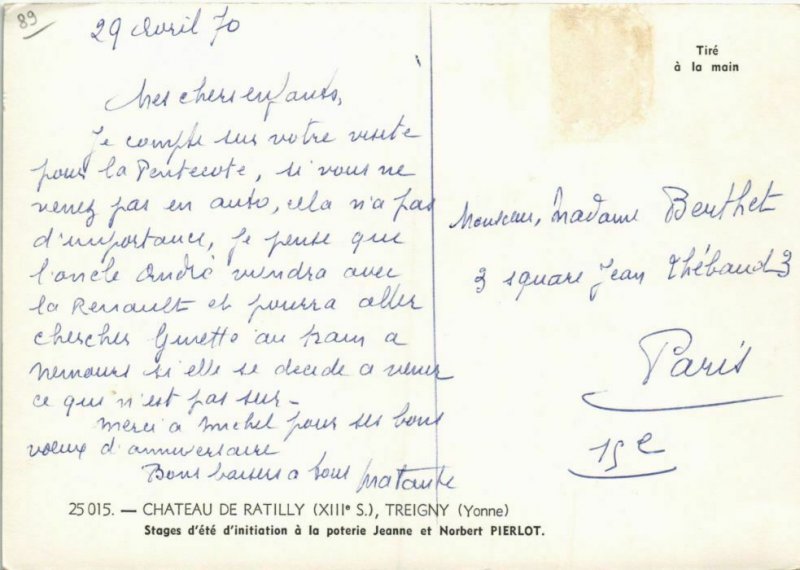 89
29 Avril 70
Mes chers enfants,
Je compte sur votre visite
pour la Pentecote, si vous ne
venez pas en auto, cela n'a pas
d'importance, Je pense que
l'oncle André viendra avec
la Renault et pourra aller
chercher Ginette au train a
Nemours si elle se decide a venir
ce que n'est pas sur -
Merci a Michel pour ses bons
voeux d'anniversaire
Bons baisers a tous
Tiré
à la main
Monsieur, Madame Berthet
3 square Jean Thébaud 3
Paris
15e
25 015. — CHATEAU DE RATILLY (XIIIe S.), TREIGNY (Yonne)
Stages d'été d'initiation à la poterie Jeanne et Norbert PIERLOT.